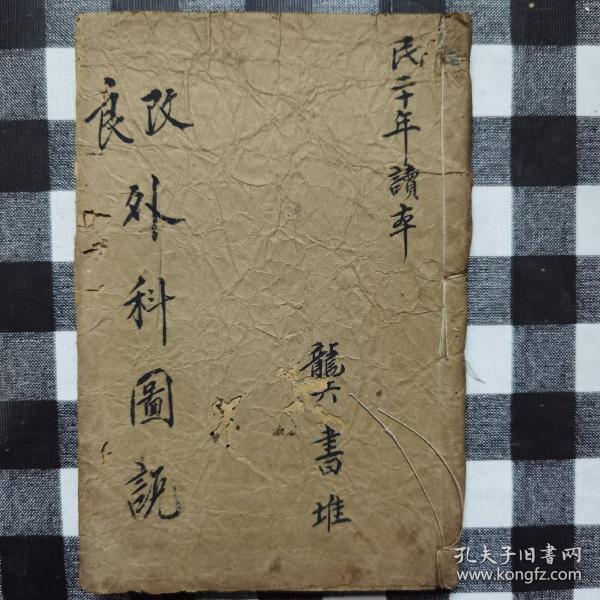 民二十年讀本
龔六書堆
改良外科圖説
孔夫子旧书网
www.kongfz.com